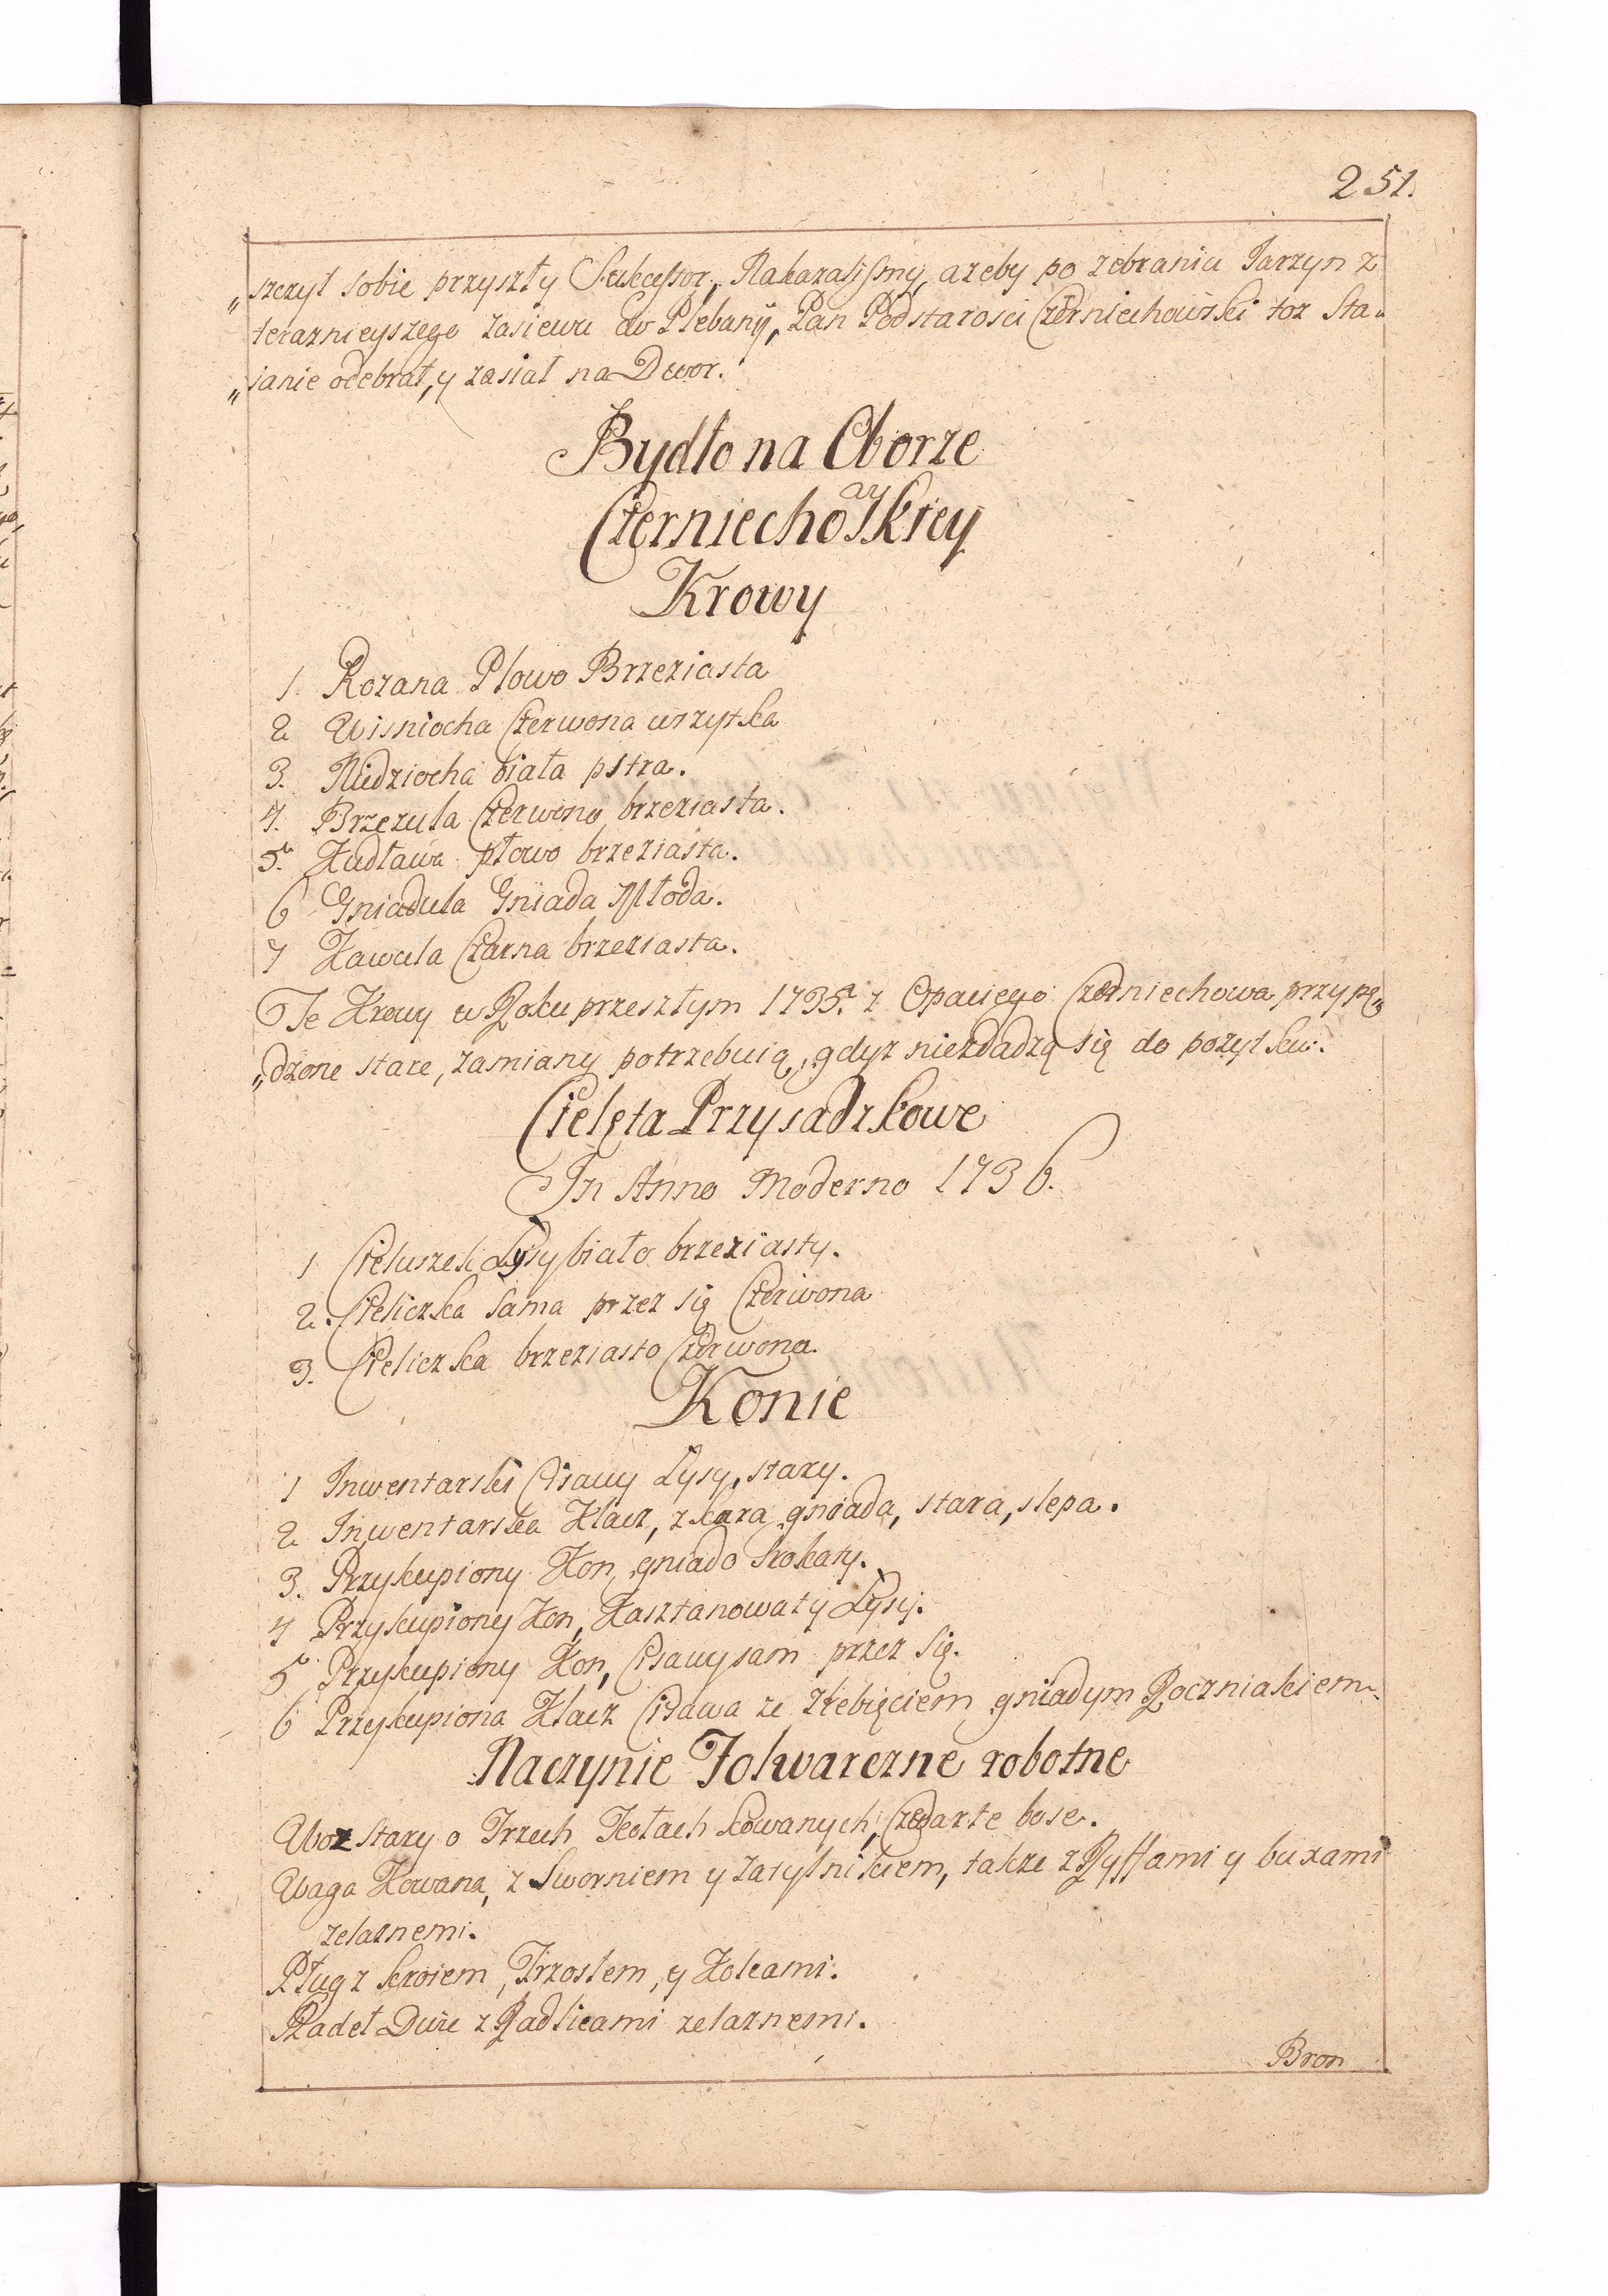 251.
„szczył sobie przyszły Sukcessor, Nakazalismy, azeby po zebraniu Jarzyn z
teraznieyszego zasiewu do Plebanÿ, Pan Podstarosci Czerniechowski toz Sta„
„ianie odebrał, y zasiał na Dwor.
Bydło na Oborze
Czerniechowskiey
Krowy
1. Rozana Płowo Brzeziasta
2 Wisniocha Czerwona wszytka
3. Rudziocha biała pstra.
4. Brzezula Czerwono brzeziasta.
5. Kudława płowo brzeziasta.
6 Gniadula Gniada Młoda.
7 Kawula Czarna brzeziasta.
Te Krowy w Roku przeszłym 1735. z Opaciego Czerniechowa przypę„
„dzone stare, zamiany potrzebuią, gdyz niezdadzą się do pozytku.
Cielęta Przysadzkowe
In Anno Moderno 1736.
1 Cieluszek Łysy biało brzeziasty.
2. Cieliczka sama przez się Czerwona
3. Cieliczka brzeziasto Czerwona.
Konie
1 Inwentarski Cisawy Łysy, stary.
2 Inwentarska Klacz, z kara gniada, stara, slepa.
3. Przykupiony Kon gniado srokaty.
4 Przykupiony Kon, Kasztanowaty Łysy.
5 Przykupiony Kon, Cisawy sam przez się.
6 Przykupiona Klacz Cisawa ze Zrebięciem gniadym Roczniakiem.
Naczynie Folwarczne robotne
Woz stary o Trzech Kołach kowanych, Czwarte bose.
Waga Kowana, z Sworniem y Zatylnikiem, takze z Ryffami y buxami
zelaznemi.
Pług z kroiem, Trzosłem, y Kolcami.
Radeł Dwie z Radlicami zelaznemi.
Bron